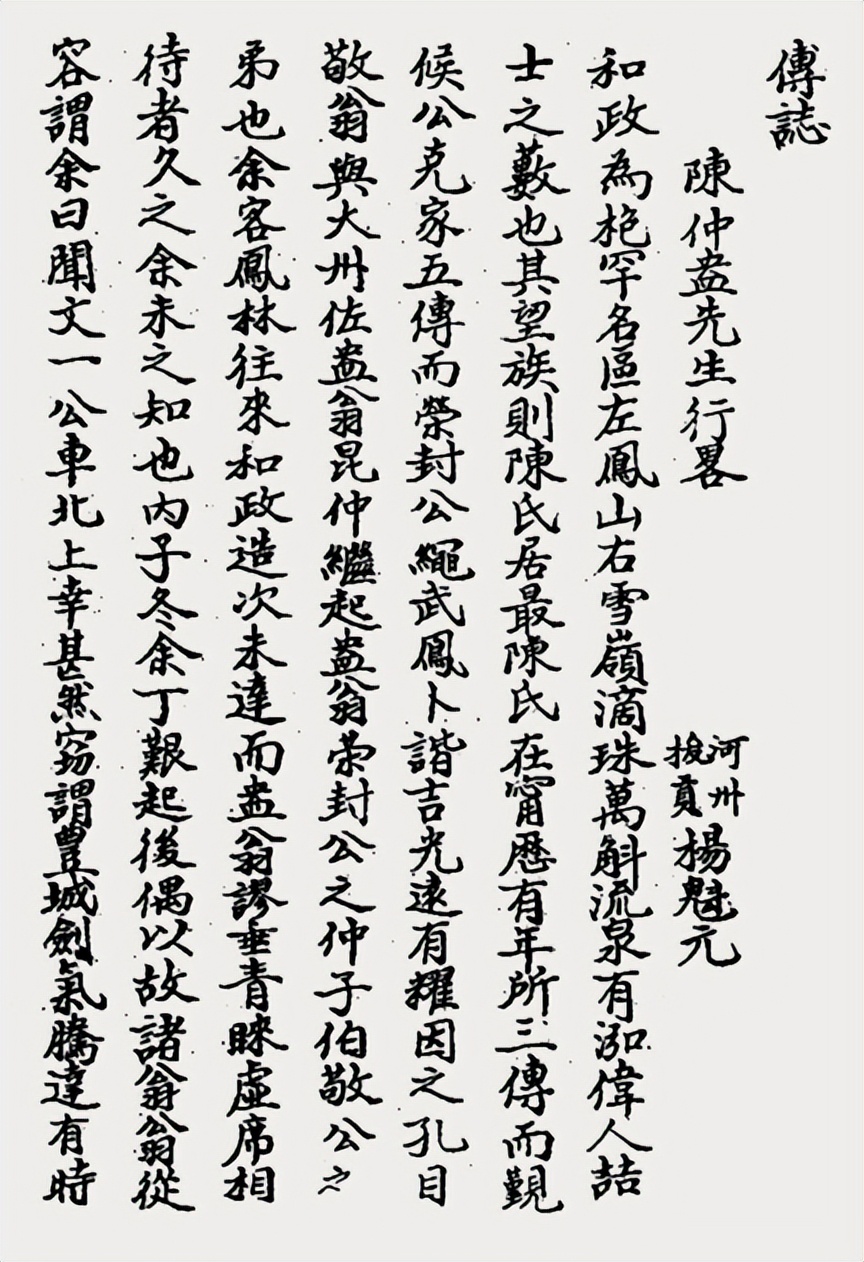 傳誌
陳仲盎先生行畧 河州拔貢楊魁元
和政為枹罕名區左鳳山右雪嶺滴珠萬斛流泉有泓偉人喆
士之藪也其望族則陳氏居最陳氏在甯歷有年所三傳而觀
候公克家五傳而榮封公繩武鳳卜諧吉光遠有耀因之孔目
敬翁與大州佐盎翁昆仲繼起盎翁荣封公之仲子伯敬公之
弟也余客鳳林往來和政造次未達而盎翁謬垂青睞虛席相
待者久之余未之知也丙子冬余丁艱起後偶以故諸翁翁從
容謂余曰聞文一公車北上幸甚然窃謂豊城劍氣騰達有時